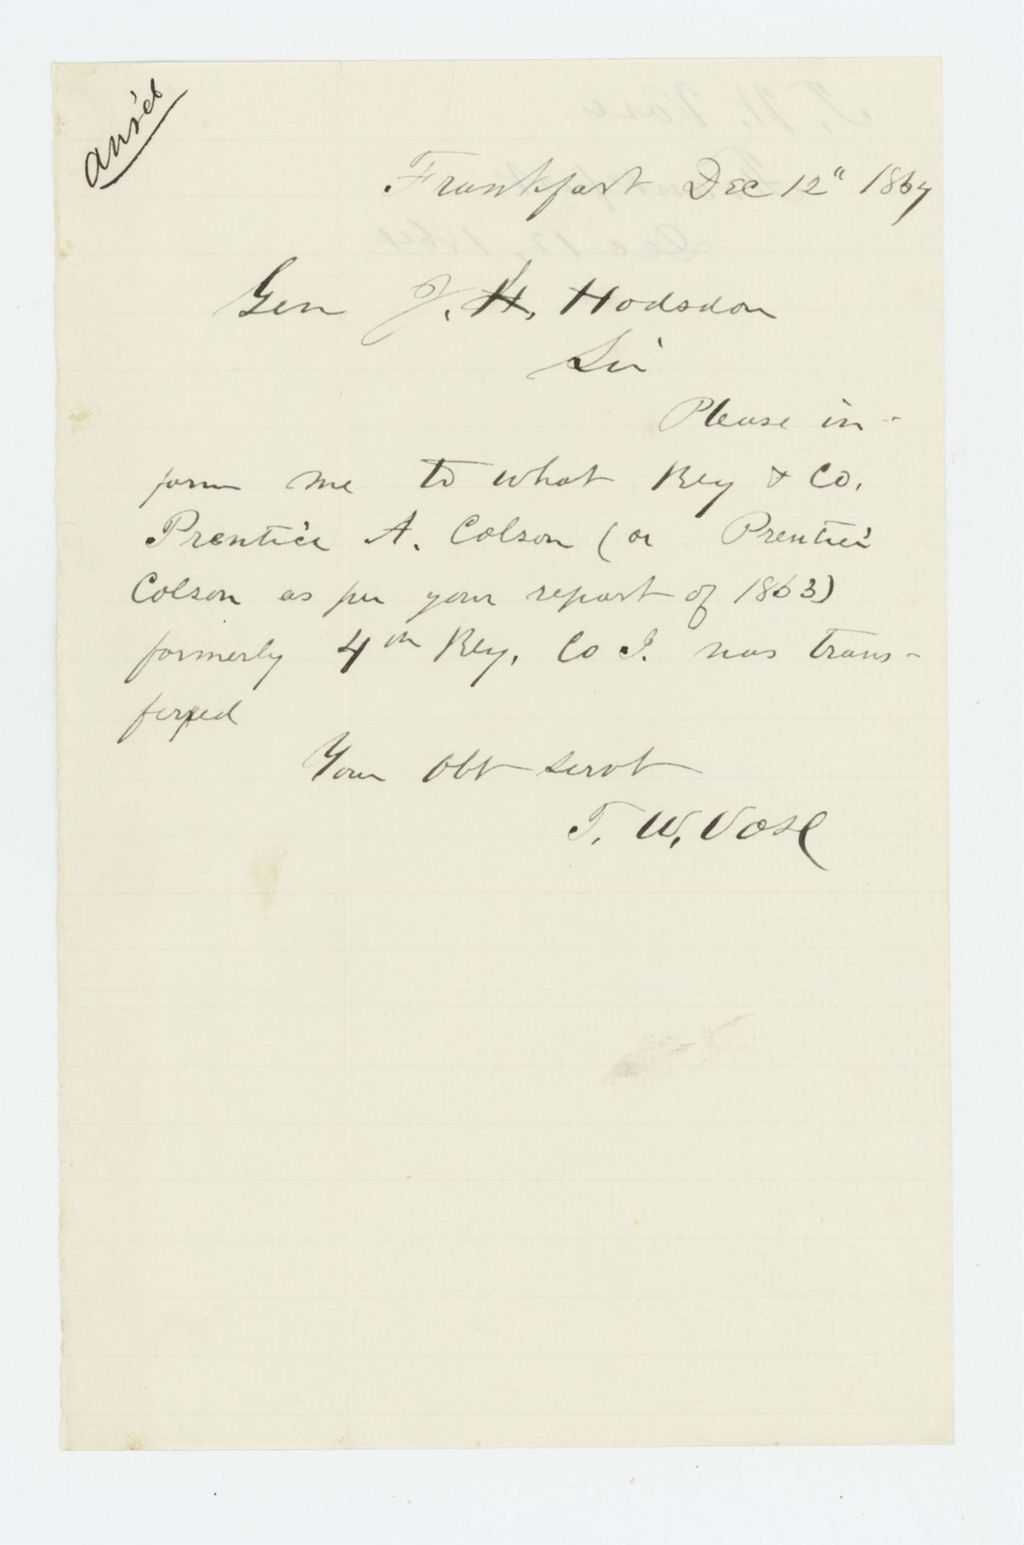 ans'd
Frankfort Dec 12" 1864
Gen J. H. Hodsdon
Sir
Please in-
form me to what Reg & Co.
Prentice A. Colson (or Prentice
Colson as per your report of 1863)
formerly 4th Reg, Co I. was trans-
ferred
Your Obt servt
T. W. Vose